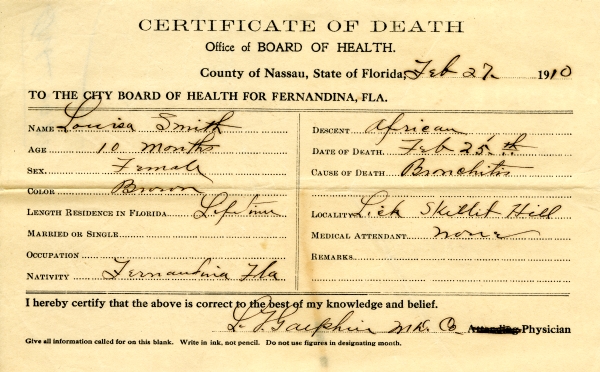 CERTIFICATE OF DEATH
Office of BOARD OF HEALTH.
County of Nassau, State of Florida, Feb 27 1910
TO THE CITY BOARD OF HEALTH FOR FERNANDINA, FLA.
NAME Louisa Smith
AGE 10 months
SEX. Female
COLOR Brown
LENGTH RESIDENCE IN FLORIDA Lifetime
MARRIED OR SINGLE
OCCUPATION
NATIVITY Fernandina Fla
DESCENT African
DATE OF DEATH. Feb 25th
CAUSE OF DEATH Bronchitis
LOCALITY Lick Skillit Hill
MEDICAL ATTENDANT none
REMARKS
I hereby certify that the above is correct to the best of my knowledge and belief.
L. G. M.D. Co Attending Physician
Give all information called for on this blank. Write in ink, not pencil. Do not use figures in designating month.